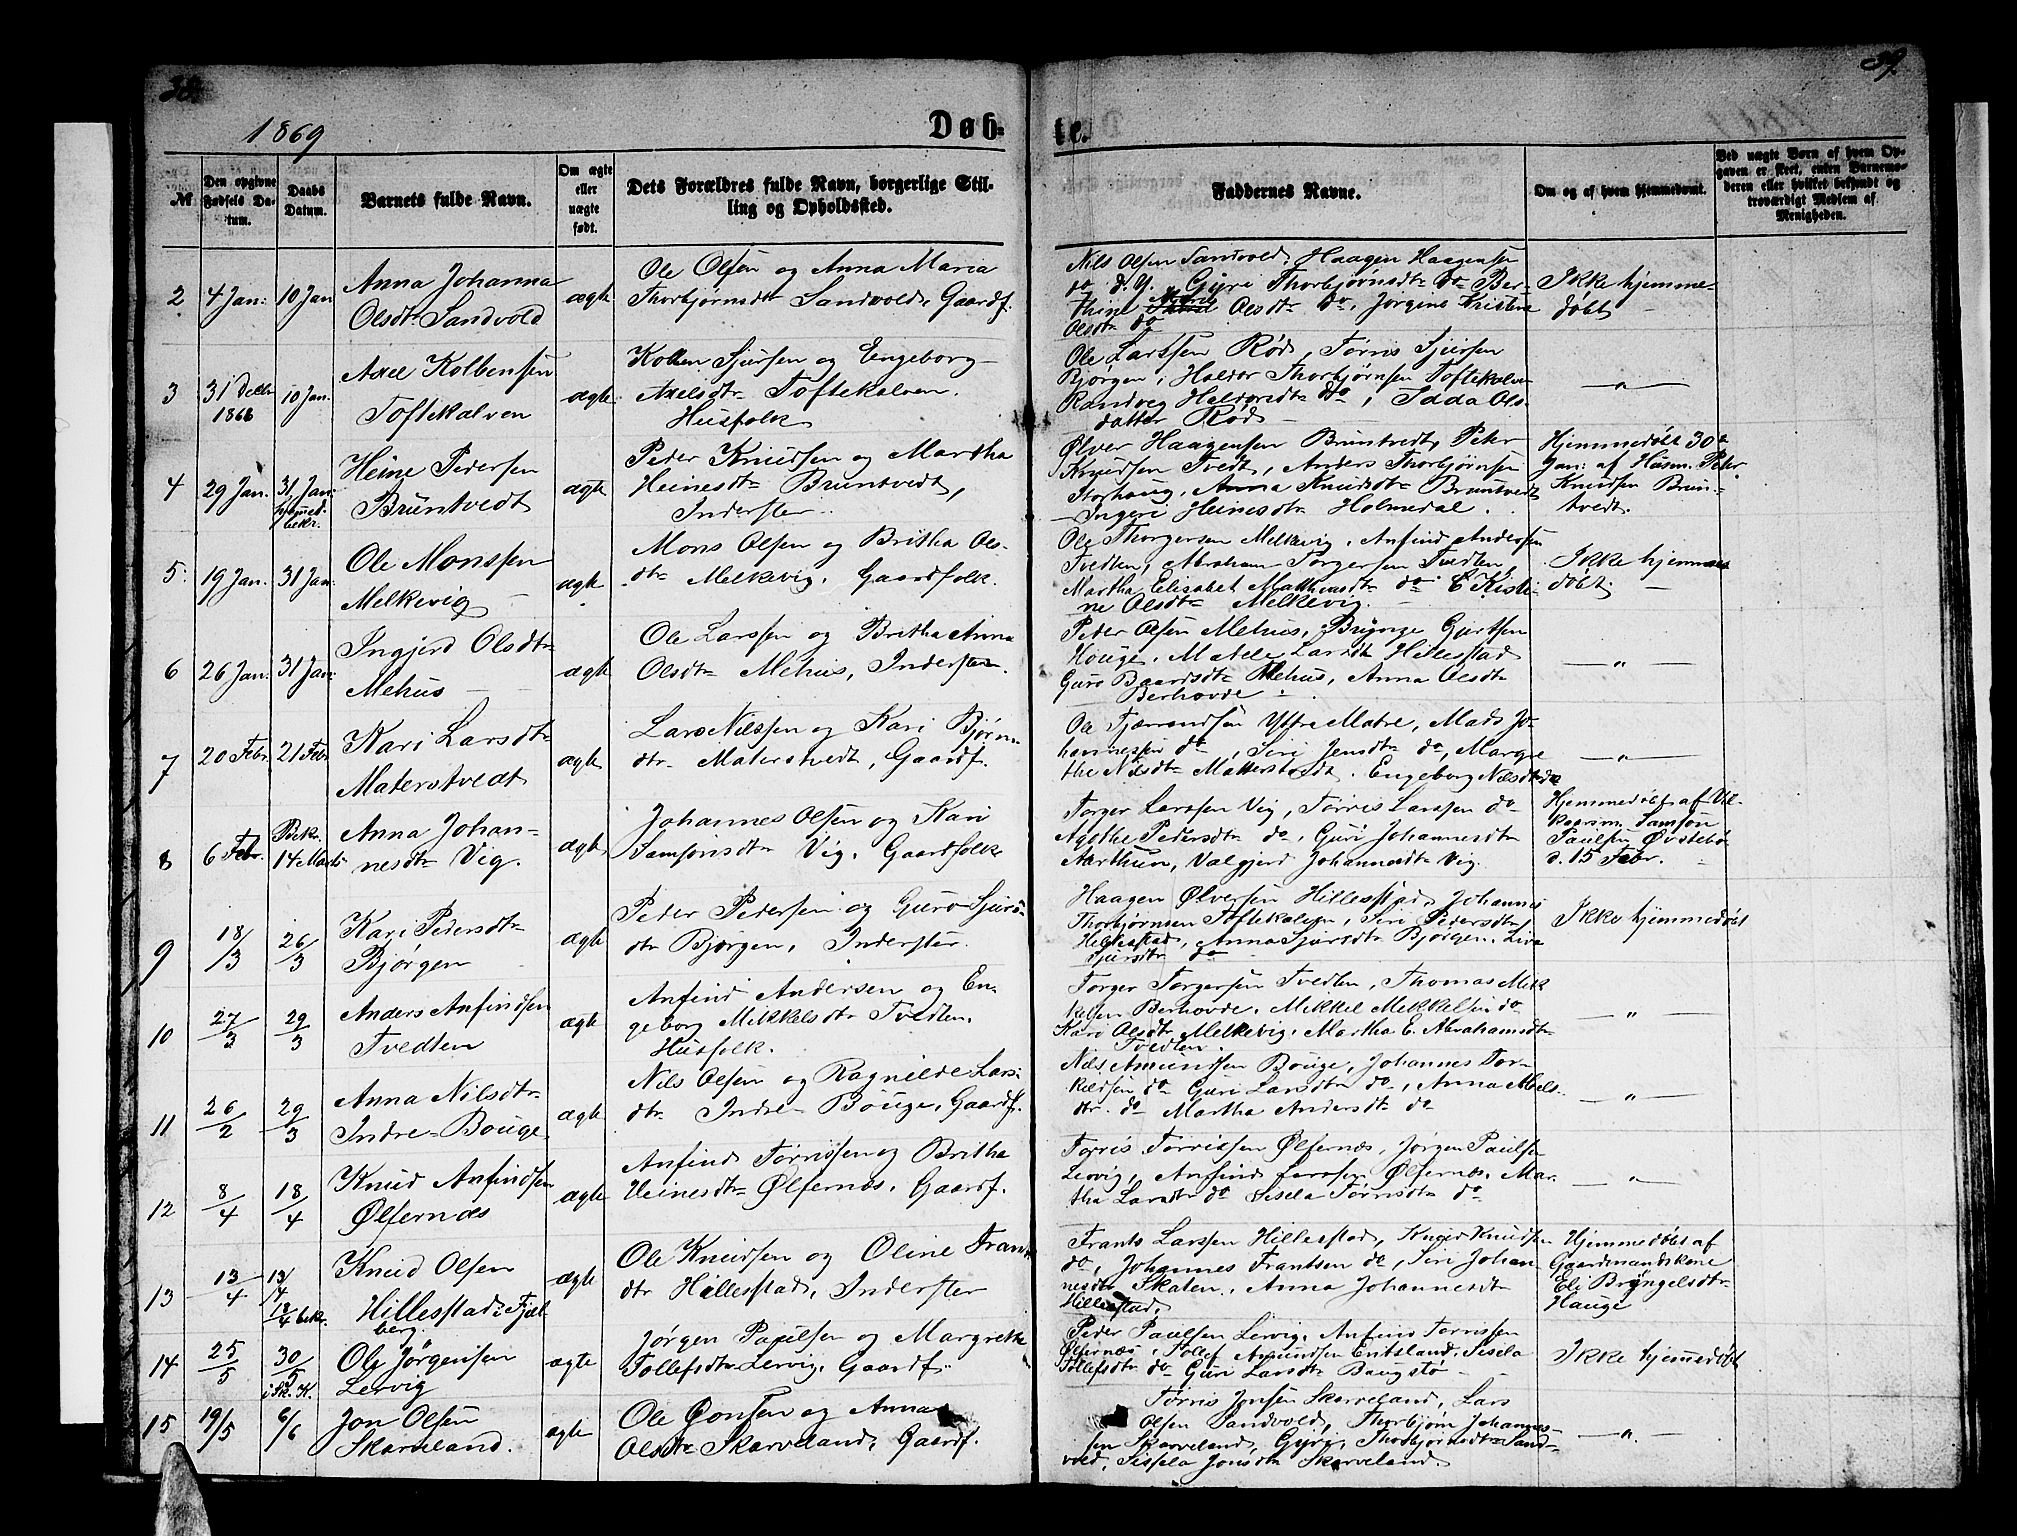 38.
39
1869
Døb-
te.
№
Den opgivne Fødsels Da-tum.
Daabs Datum.
Barnets fulde Navn.
Om ægte eller uægte født.
Dets Forældres fulde Navn, borgerlige Stil-
ling og Opholdssted.
Faddernes Navne.
Om og af hvem hjemmedøbt.
Ved uægte Børn af hvem Op-
gaven er skeet, enten Barnemo-
deren eller hvilket bekjendt og
troværdigt Medlem af
Menigheden.
2
4 Jan:
10 Jan
Anna Johanna
Olsdtr Sandvold
ægte
Ole Olsen og Anna Maria
Thorbjørnsdtr Sandvold, Gaardf.
Nils Olsen Sandvold, Haagen Haagensen
do d. y. Gyri Thorbjørnsdtr do Ber-
thine Marie Olsdtr do, Jørgena Kristine
Olsdtr do
Ikke hjemme-
døbt —
3
31 Decbr
1868
10 Jan.
Axel Kolbensen
Toftekalven
ægte
Kolben Sjursen og Engeborg
Axelsdtr Toftekalven.
Husfolk
Ole Larssen Rød, Tørris Sjursen
Bjørgen, Haldor Thorbjørnsen Toftekalven
Randveg Haldorsdtr do, Idda Ols-
datter Rød —
— " —
4
29 Jan.
31 Jan.
hjemmed.
bekr.
Heine Pedersen
Bruntvedt
ægte
Peder Knudsen og Martha
Heinesdtr Bruntvedt,
Inderster.
Ølver Haagensen Bruntvedt, Peder
Knudsen Tvedt, Anders Thorbjørnsen
Storhoug, Anna Knudsdtr Bruntvedt
— Ingeri Heinesdtr Holmedal.
Hjemmedøbt 30te
Jan: af Husm. Peder
Knudsen Brun-
tvedt.
5
19 Jan.
31 Jan
Ole Monssen
Melkevig —
ægte
Mons Olsen og Britha Ols-
dtr Melkevig. Gaardfolk.
Ole Thorgersen Melkevig, Anfind Andersen
Tvedten, Abraham Torgersen Tvedten,
Martha Elisabet Matthiasdtr do & Kisti-
ne Olsdtr Melkevig. —
Ikke hjemme
døbt. —
6
26 Jan.
31 Jan:
Ingjerd Olsdtr
Mehus — —
ægte
Ole Larssen og Britha Anna
Olsdtr Mehus, Inderster.
Peder Olsen Mehus, Brynge Gjertsen
Houge, Malle Larsdtr Hillestad
Guro Baardsdtr Mehus, Anna Olsdtr
Berhovde.
— " —
7
20 Febr.
21 Febr
Kari Larsdtr
Materstvedt
ægte
Lars Nilssen og Kari Bjørns-
dtr. Materstvedt, Gaardf.
Ole Tjærandsen Yttre Matre, Mads Jo-
hannessen do, Siri Jensdtr do, Margre
the Nilsdtr Matterstvedt. Engeborg Nilsdtr do
— " —
8
6 Febr.
Bekr.
14 Marts
Anna Johan-
nesdtr Vig.
ægte
Johannes Olsen og Kari
Samsonsdtr Vig. Gaardfolk
Torger Larssen Vig, Tørris Larssen do
Agathe Pedersdtr do, Guri Johannesdtr
Aarthun, Valgjerd Johannesdtr Vig.
Hjemmedøbt af Vil-
kaarsm. Samson
Paulsen Øvstebø
d. 15 Febr. —
9
18/3
26/3
Kari Pedersdtr
Bjørgen
ægte
Peder Pedersen og Guro Sjurs-
dtr Bjørgen, Inderster.
Haagen Ølversen Hillestad, Johannes
Thorbjørnsen Toftekalven, Siri Pedersdtr
Hillestad, Anna Sjursdtr Bjørgen, Liva
Sjursdtr do
Ikke hjemmedøbt
10
27/3
29/3
Anders Anfindsen
Tvedten
ægte
Anfind Andersen og En-
geborg Mikkelsdtr Tvedten.
Husfolk.
Torger Torgersen Tvedten, Thomas Mik
kelsen Berhovde. Mikkel Mikkelsen do
Kari Olsdtr Melkevig. Martha E. Abrahamsdtr
Tvedten.
— " —
11
26/2
29/3
Anna Nilsdtr
Indre Bouge
ægte
Nils Olsen og Ragnilde Lars-
dtr. Indre Bouge, Gaardf.
Nils Amundsen Bouge, Johannes Tor-
kildsen do Guri Larsdtr do, Anna Niels-
dtr. do Martha Andersdtr do
— " —
12
8/4
18/4
Knud Anfindsen
Ølfernæs
ægte
Anfind Tørrissen og Britha
Heinesdtr Ølfernæs. Gaardf.
Tørris Tørrissen Ølfernæs, Jørgen Paulsen
Lervig, Anfind Larssen Ølfernæs, Mar-
tha Larsdtr do Sisela Tørrisdtr do
— " —
13
13/4
13/4
18/4 bekr.
Knud Olsen
Hillestad i Fjel-
berg.
ægte
Ole Knudsen og Oline Frants
dtr Hillestad, Inderster
Frants Larssen Hillestad, Knud Knudsen
do, Johannes Frantsen do, Siri Johan
nesdtr Skaten, Anna Johannesdtr
Hillestad.
Hjemmedøbt af
Gaardmandskone
Eli Bryngelsdtr
Hauge
14
25/5
30/5
i Sk. K.
Ole Jørgensen
Lervig
ægte
Jørgen Paulsen og Margrethe
Tollefsdtr Lervig, Gaardf.
Peder Paulsen Lervig, Anfind Tørrissen
Ølfernæs, Tollef Amundsen Enteland, Sisela
Tollefsdtr do Guri Larsdtr Baugstø
Ikke hjemmedøbt
15
19/5
6/6
Jon Olsen
Skarveland.
ægte
Ole Jonsen og Anna
Olsdtr Skarveland, Gaardf.
Tørris Jonsen Skarveland, Lars
Olsen Sandvold, Thorbjørn Johannes-
sen Skarveland, Gyri Thorbjørnsdtr Sand-
vold, Sissela Jonsdtr Skarveland.
— " —